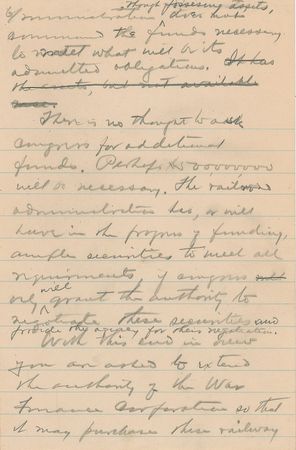 administration, though possessing assets, does not
command the funds necessary
to meet what will be its
admitted obligations. It has
the assets, but not available
There is no thought to ask
congress for additional
funds. Perhaps $500000000
will be necessary. The railroad
administration has, or will
have in the progress of funding,
ample securities to meet all
requirements, if congress will
only will grant the authority to
negotiate these securities and
provide the agency for their negotiation.
With this end in view
you are asked to extend
the authority of the War
Finance Corporation so that
it may purchase these railway